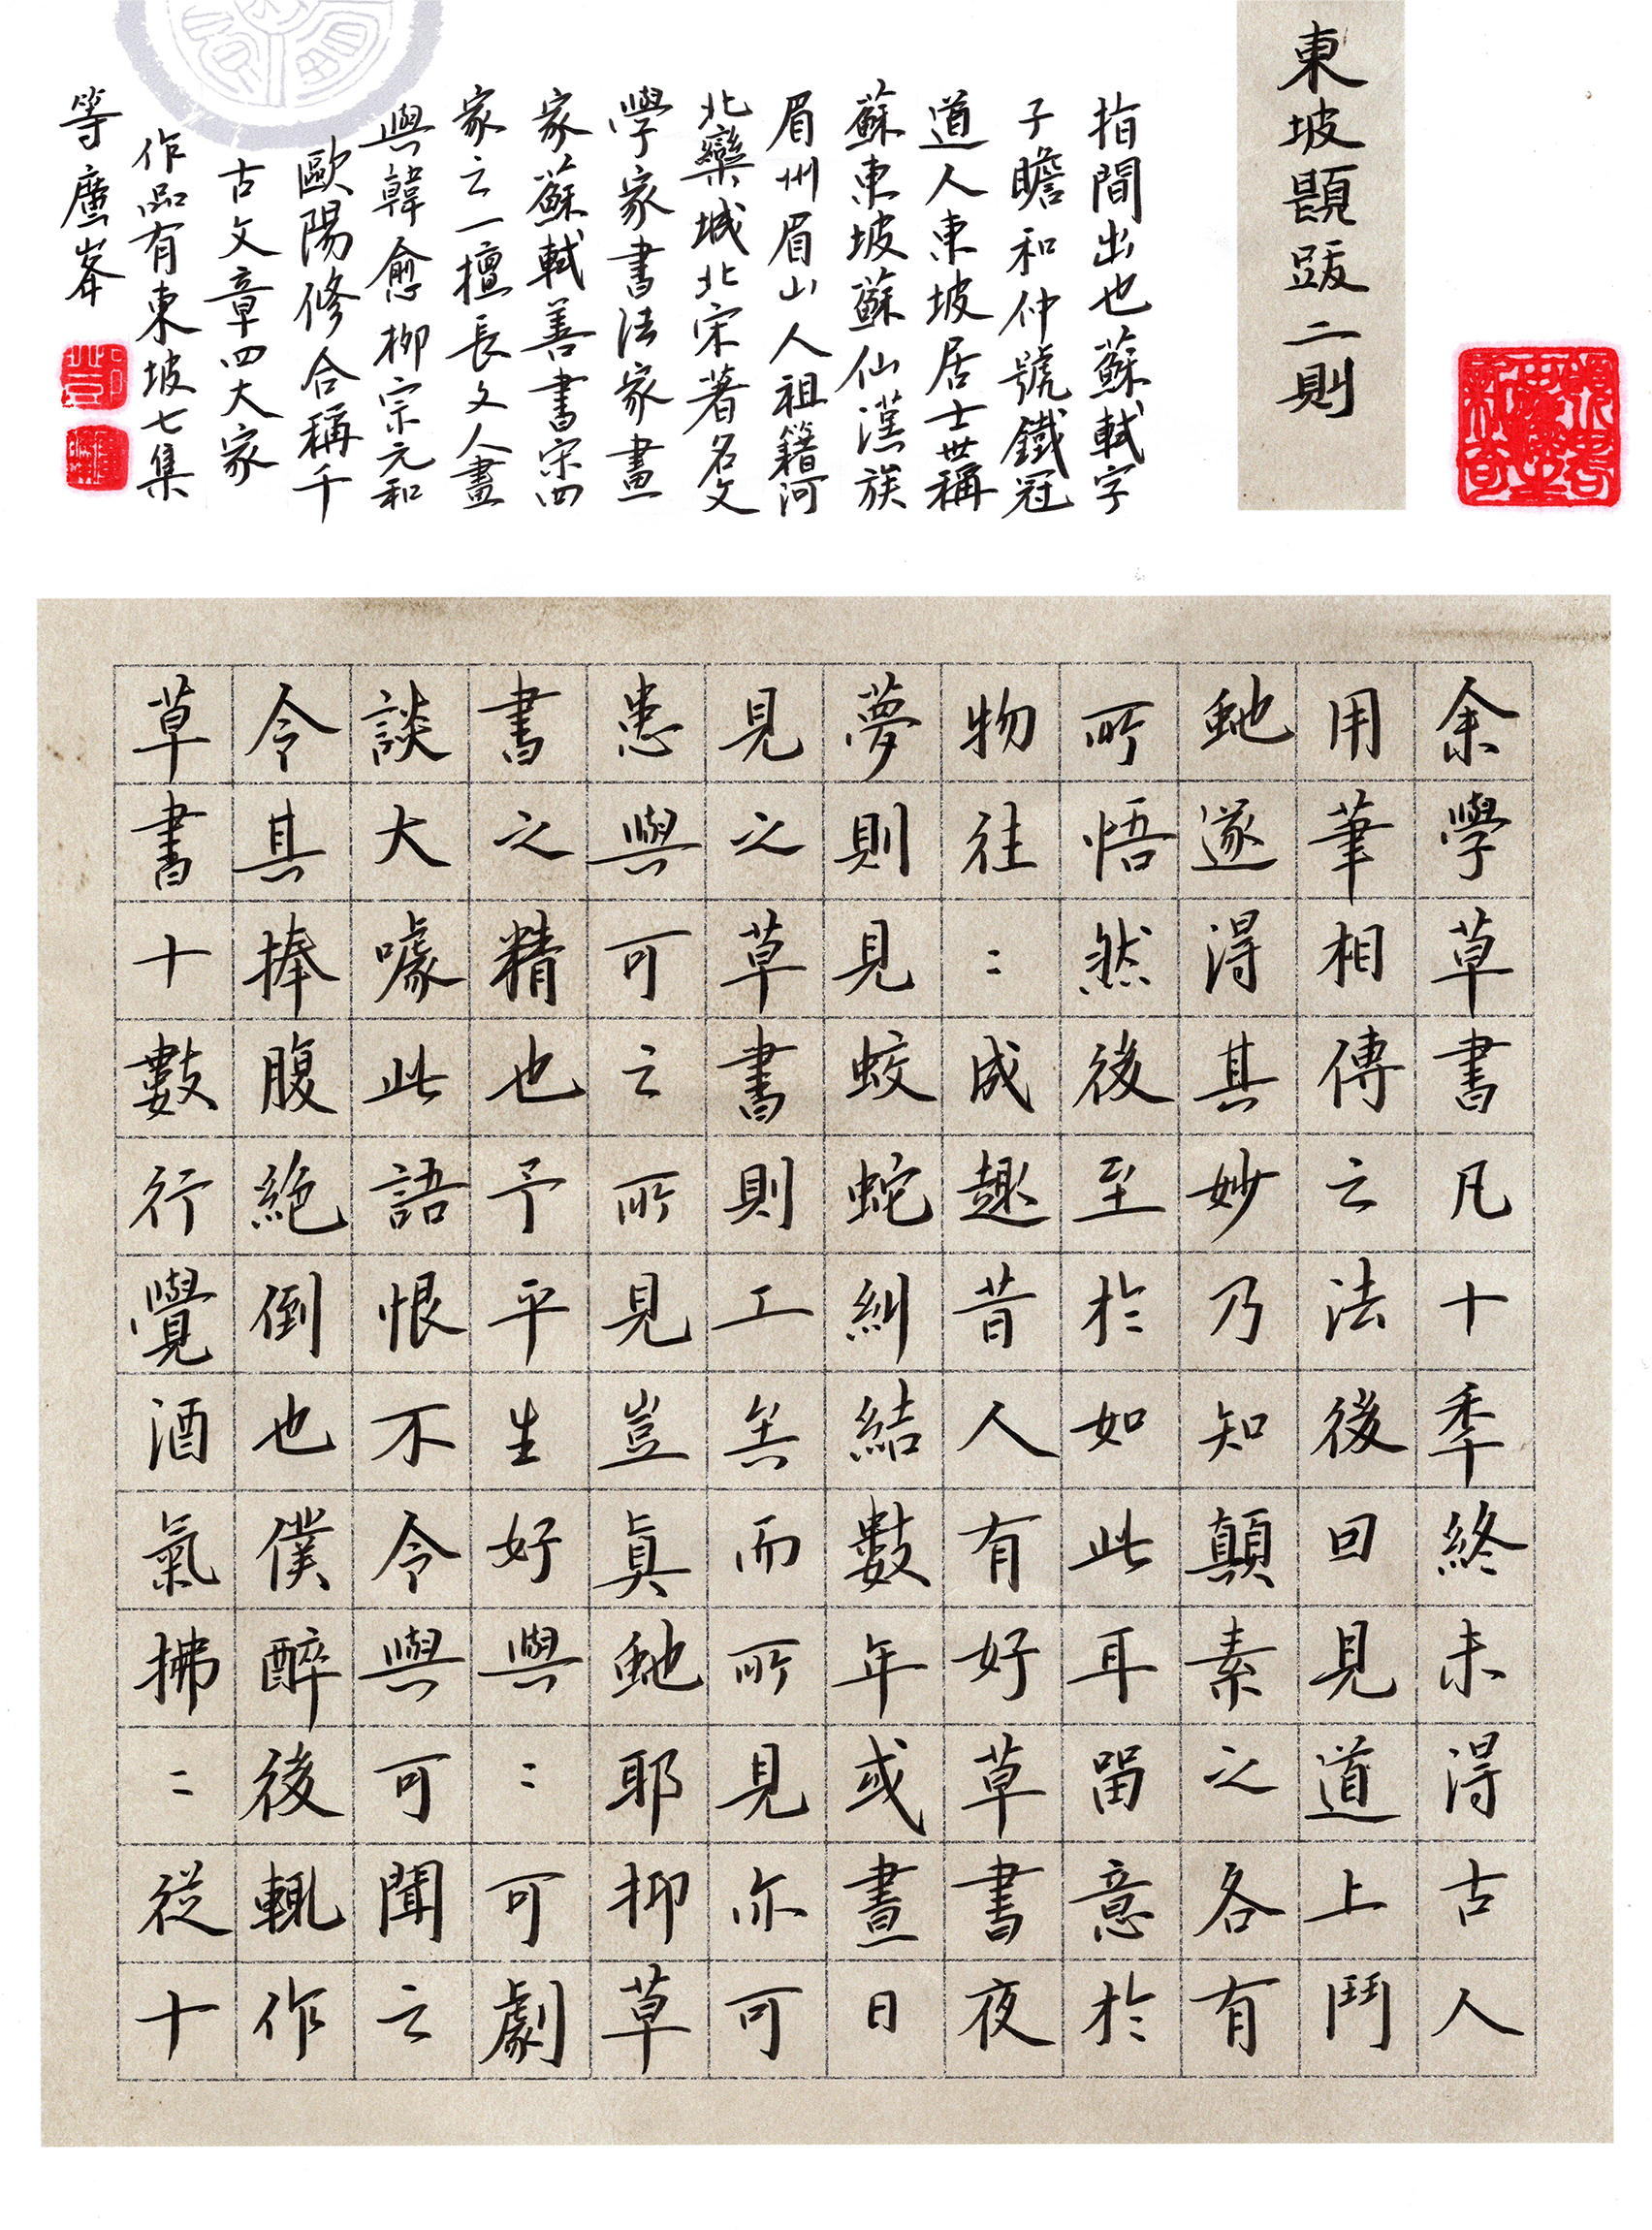 東坡題跋二則
余學草書凡十秊終未得古人
用筆相傳之法後囙見道上鬥
虵遂得其妙乃知顛素之各有
所悟然後至於如此耳留意於
物往〻成趣昔人有好草書夜
夢則見蛟蛇糾結數年或晝日
見之草書則工矣而所見亦可
患與可之所見豈真虵耶抑草
書之精也予平生好與〻可劇
談大噱此語恨不令與可聞之
令其捧腹絕倒也僕醉後輒作
草書十數行覺酒氣拂〻從十
指間出也蘇軾字
子瞻和仲號鐵冠
道人東坡居士世稱
蘇東坡蘇仙漢族
眉州眉山人祖籍河
北欒城北宋著名文
學家書法家畫
家蘇軾善書宋四
家之一擅長文人畫
與韓愈柳宗元和
歐陽修合稱千
古文章四大家
作品有東坡七集
等塵峯